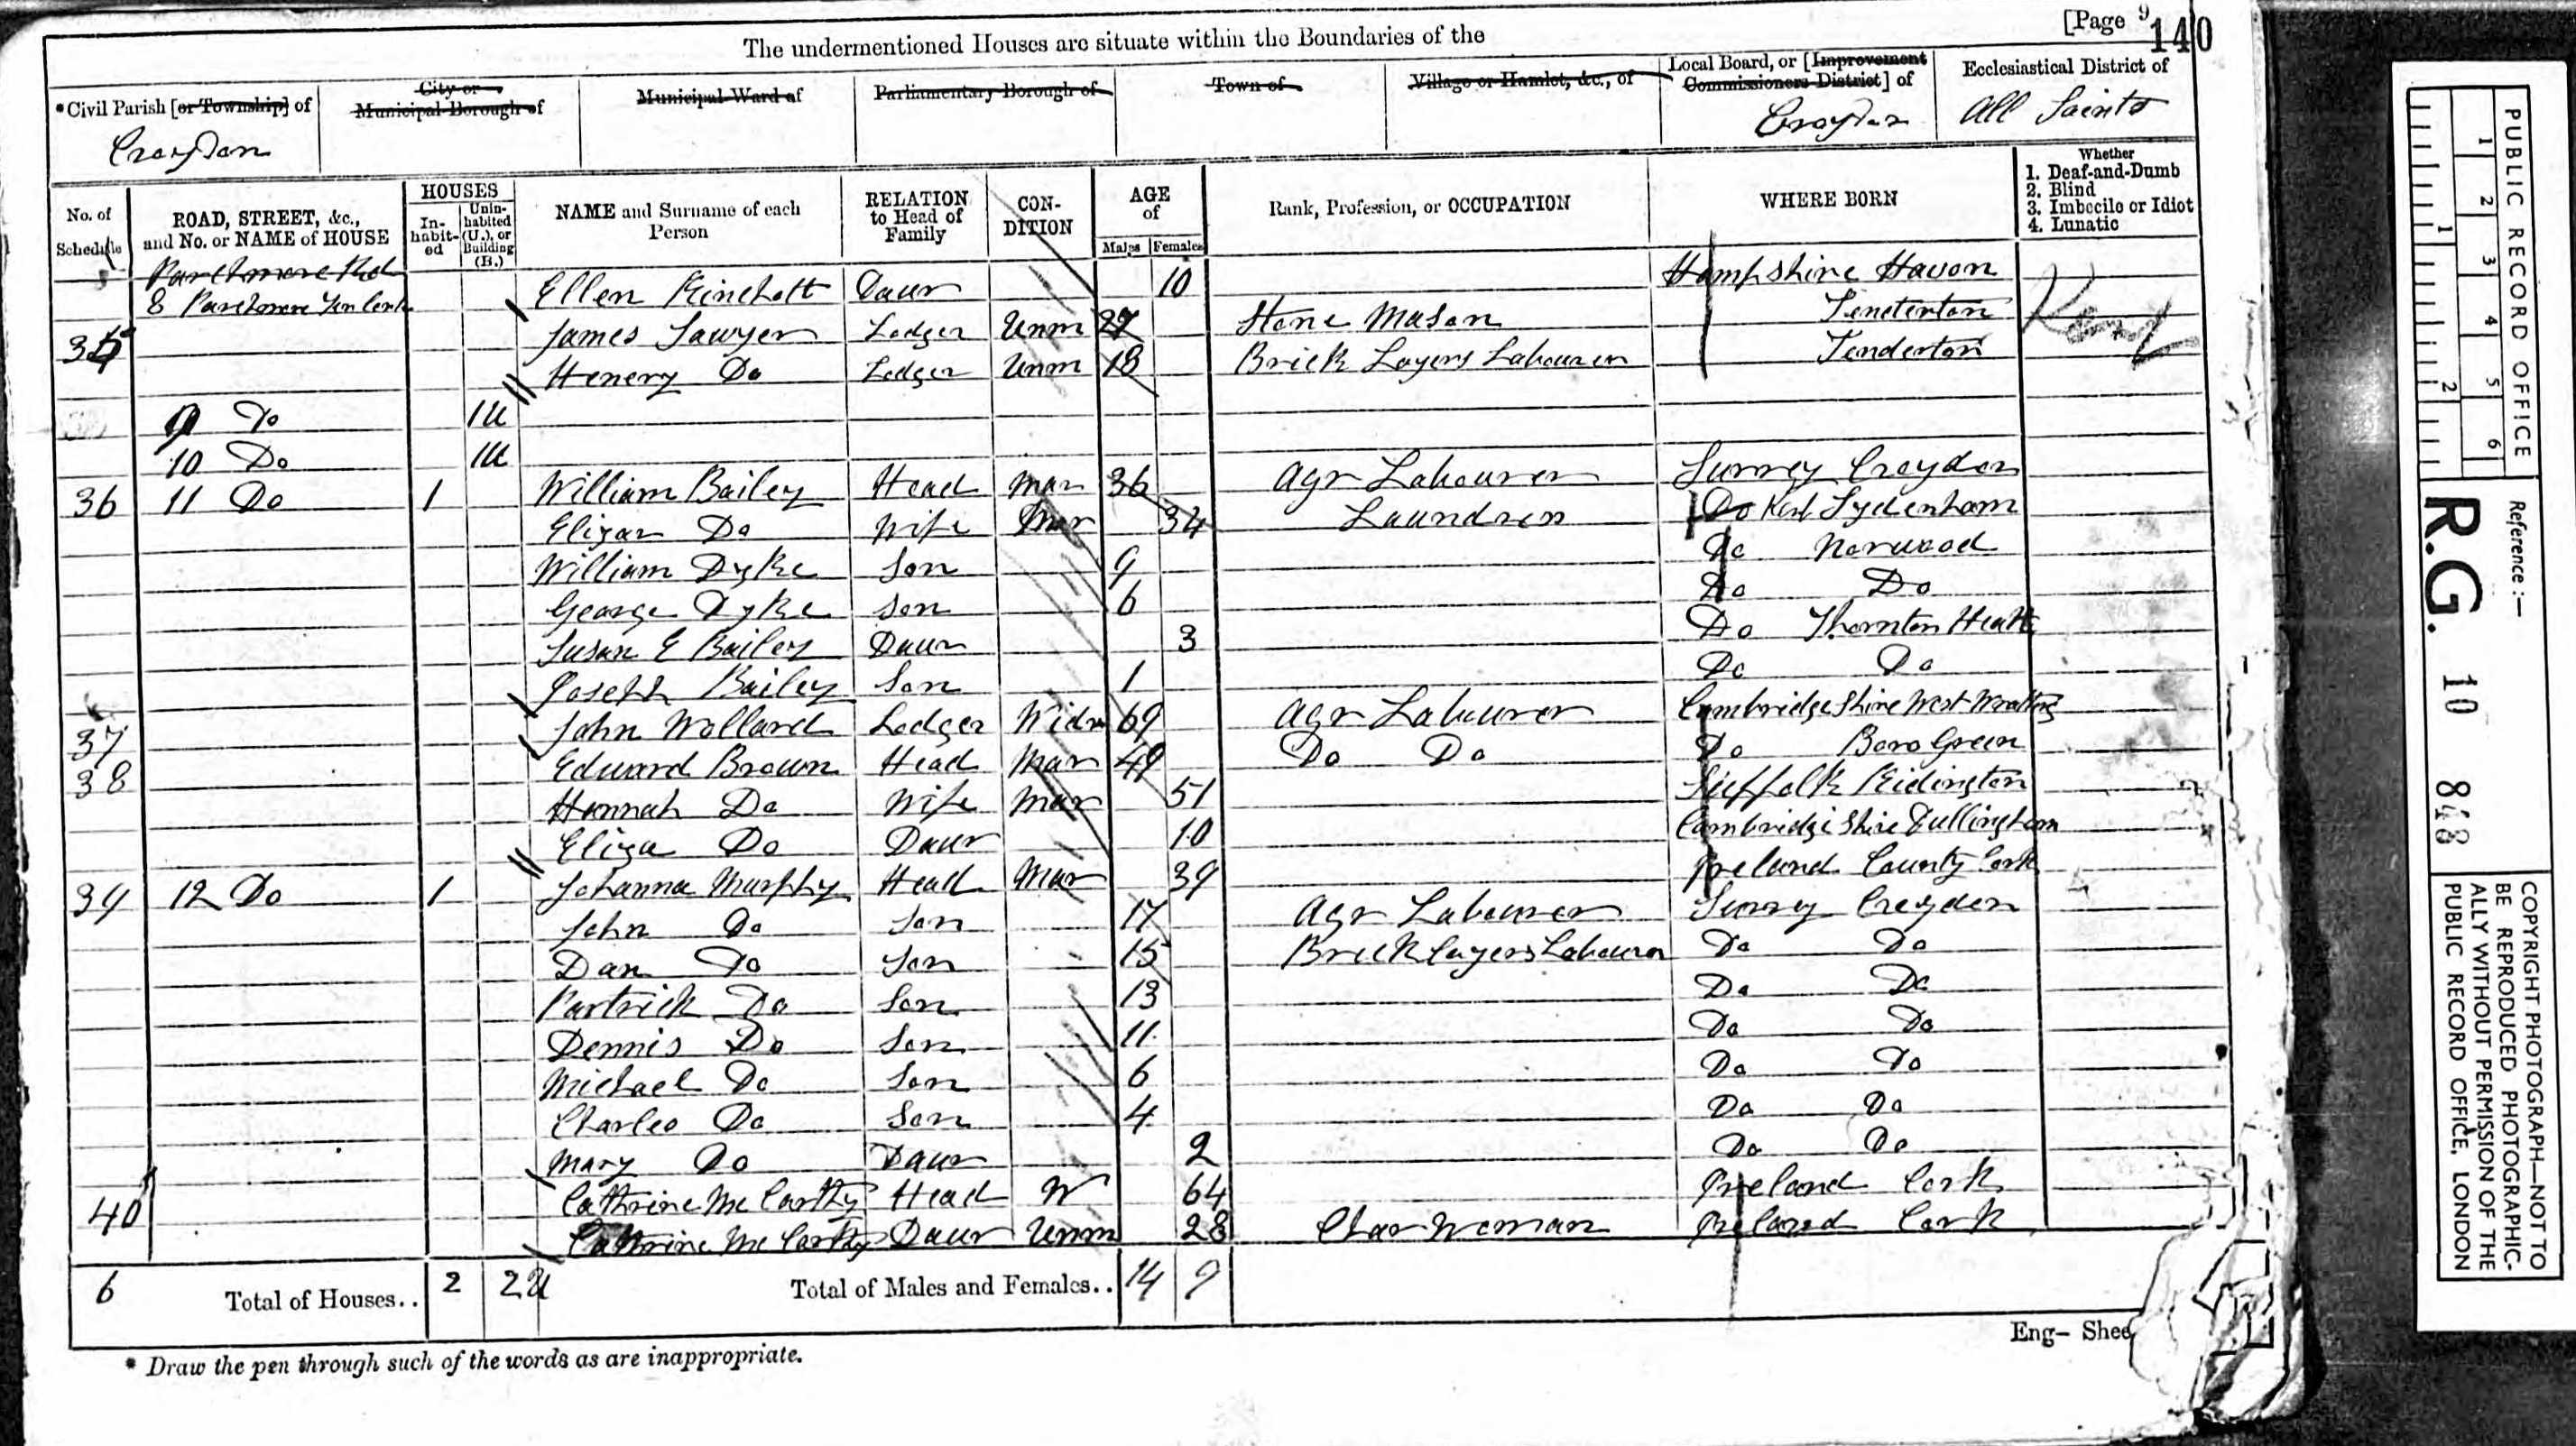 [Page 9
140
The undermentioned Houses are situate within the Boundaries of the
*Civil Parish [or Township] of
City or Municipal Borough of
Municipal Ward of
Parliamentary Borough of
Town of
Village or Hamlet, &c., of
Local Board, or [Improvement Commissioners District] of
Ecclesiastical District of
Croydon
Croydon
All Saints
No. of Schedule
ROAD, STREET, &c., and No. or NAME of HOUSE
HOUSES
In-habit-ed
Unin-habited (U.), or Building (B.)
NAME and Surname of each Person
RELATION to Head of Family
CON-DITION
AGE of
Males Females
Rank, Profession, or OCCUPATION
WHERE BORN
Whether
1. Deaf-and-Dumb
2. Blind
3. Imbecile or Idiot
4. Lunatic
Parchmore Rd
8 Parchmore
Ellen Kinchett Daur 10 Hampshire Havon
35 James Sawyer Lodger Unm 27 Stone Mason Tenterton Kent
Henery Do Lodger Unm 18 Brick Layers Labourer Tenderton
9 Do 1U
10 Do 1U
36 11 Do 1 William Bailey Head Mar 36 Agr Labourer Surrey Croydon
Elizar Do Wife Mar 34 Laundress Do Kent Sydenham
William Dyke Son 9 Do Norwood
George Dyke Son 6 Do Do
Susan E Bailey Daur 3 Do Thornton Heath
Joseph Bailey Son 1 Do Do
37 John Wollard Lodger Widr 69 Agr Labourer Cambridgeshire West Wratting
38 Edward Brown Head Mar 49 Do Do Do Boro Green
Hannah Do Wife Mar 51 Suffolk Kidington
Eliza Do Daur 10 Cambridgeshire Dullingham
39 12 Do 1 Johanna Murphy Head Mar 39 Ireland County Cork
John Do Son 17 Agr Labourer Surrey Croydon
Dan Do Son 15 Bricklayers Labourer Do Do
Partrick Do Son 13 Do Do
Dennis Do Son 11 Do Do
Michael Do Son 6 Do Do
Charles Do Son 4 Do Do
Mary Do Daur 2 Do Do
40 Cathrine Mc Carthy Head W 64 Ireland Cork
Cathrine Mc Carthy Daur Unm 28 Char Woman Ireland Cork
6 Total of Houses.. 2 2U Total of Males and Females.. 14 9
Eng— Shee
* Draw the pen through such of the words as are inappropriate.
PUBLIC RECORD OFFICE
1 2 3 4 5 6
1 2
Reference :—
R.G. 10 848
COPYRIGHT PHOTOGRAPH—NOT TO
BE REPRODUCED PHOTOGRAPHIC-
ALLY WITHOUT PERMISSION OF THE
PUBLIC RECORD OFFICE, LONDON